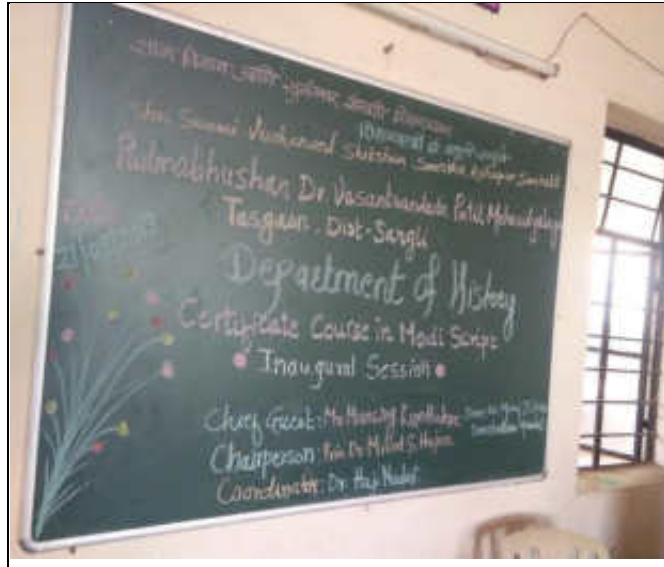 ज्ञान विज्ञान आणि सुसंस्कार यासाठी शिक्षण प्रसार
Shri Swami Vivekanand Shikshan Sanstha Kolhapur Sanchalit
Padmabhushan Dr. Vasantraodada Patil Mahavidyalaya
Tasgaon. Dist-Sangli
Date
Department of History
Certificate Course in Modi Script
Inaugural Session
Chief Guest: Mr.
Chairperson: Prin. Dr. Milind S. Hujare
Coordinator: Dr. Haji Nadaf